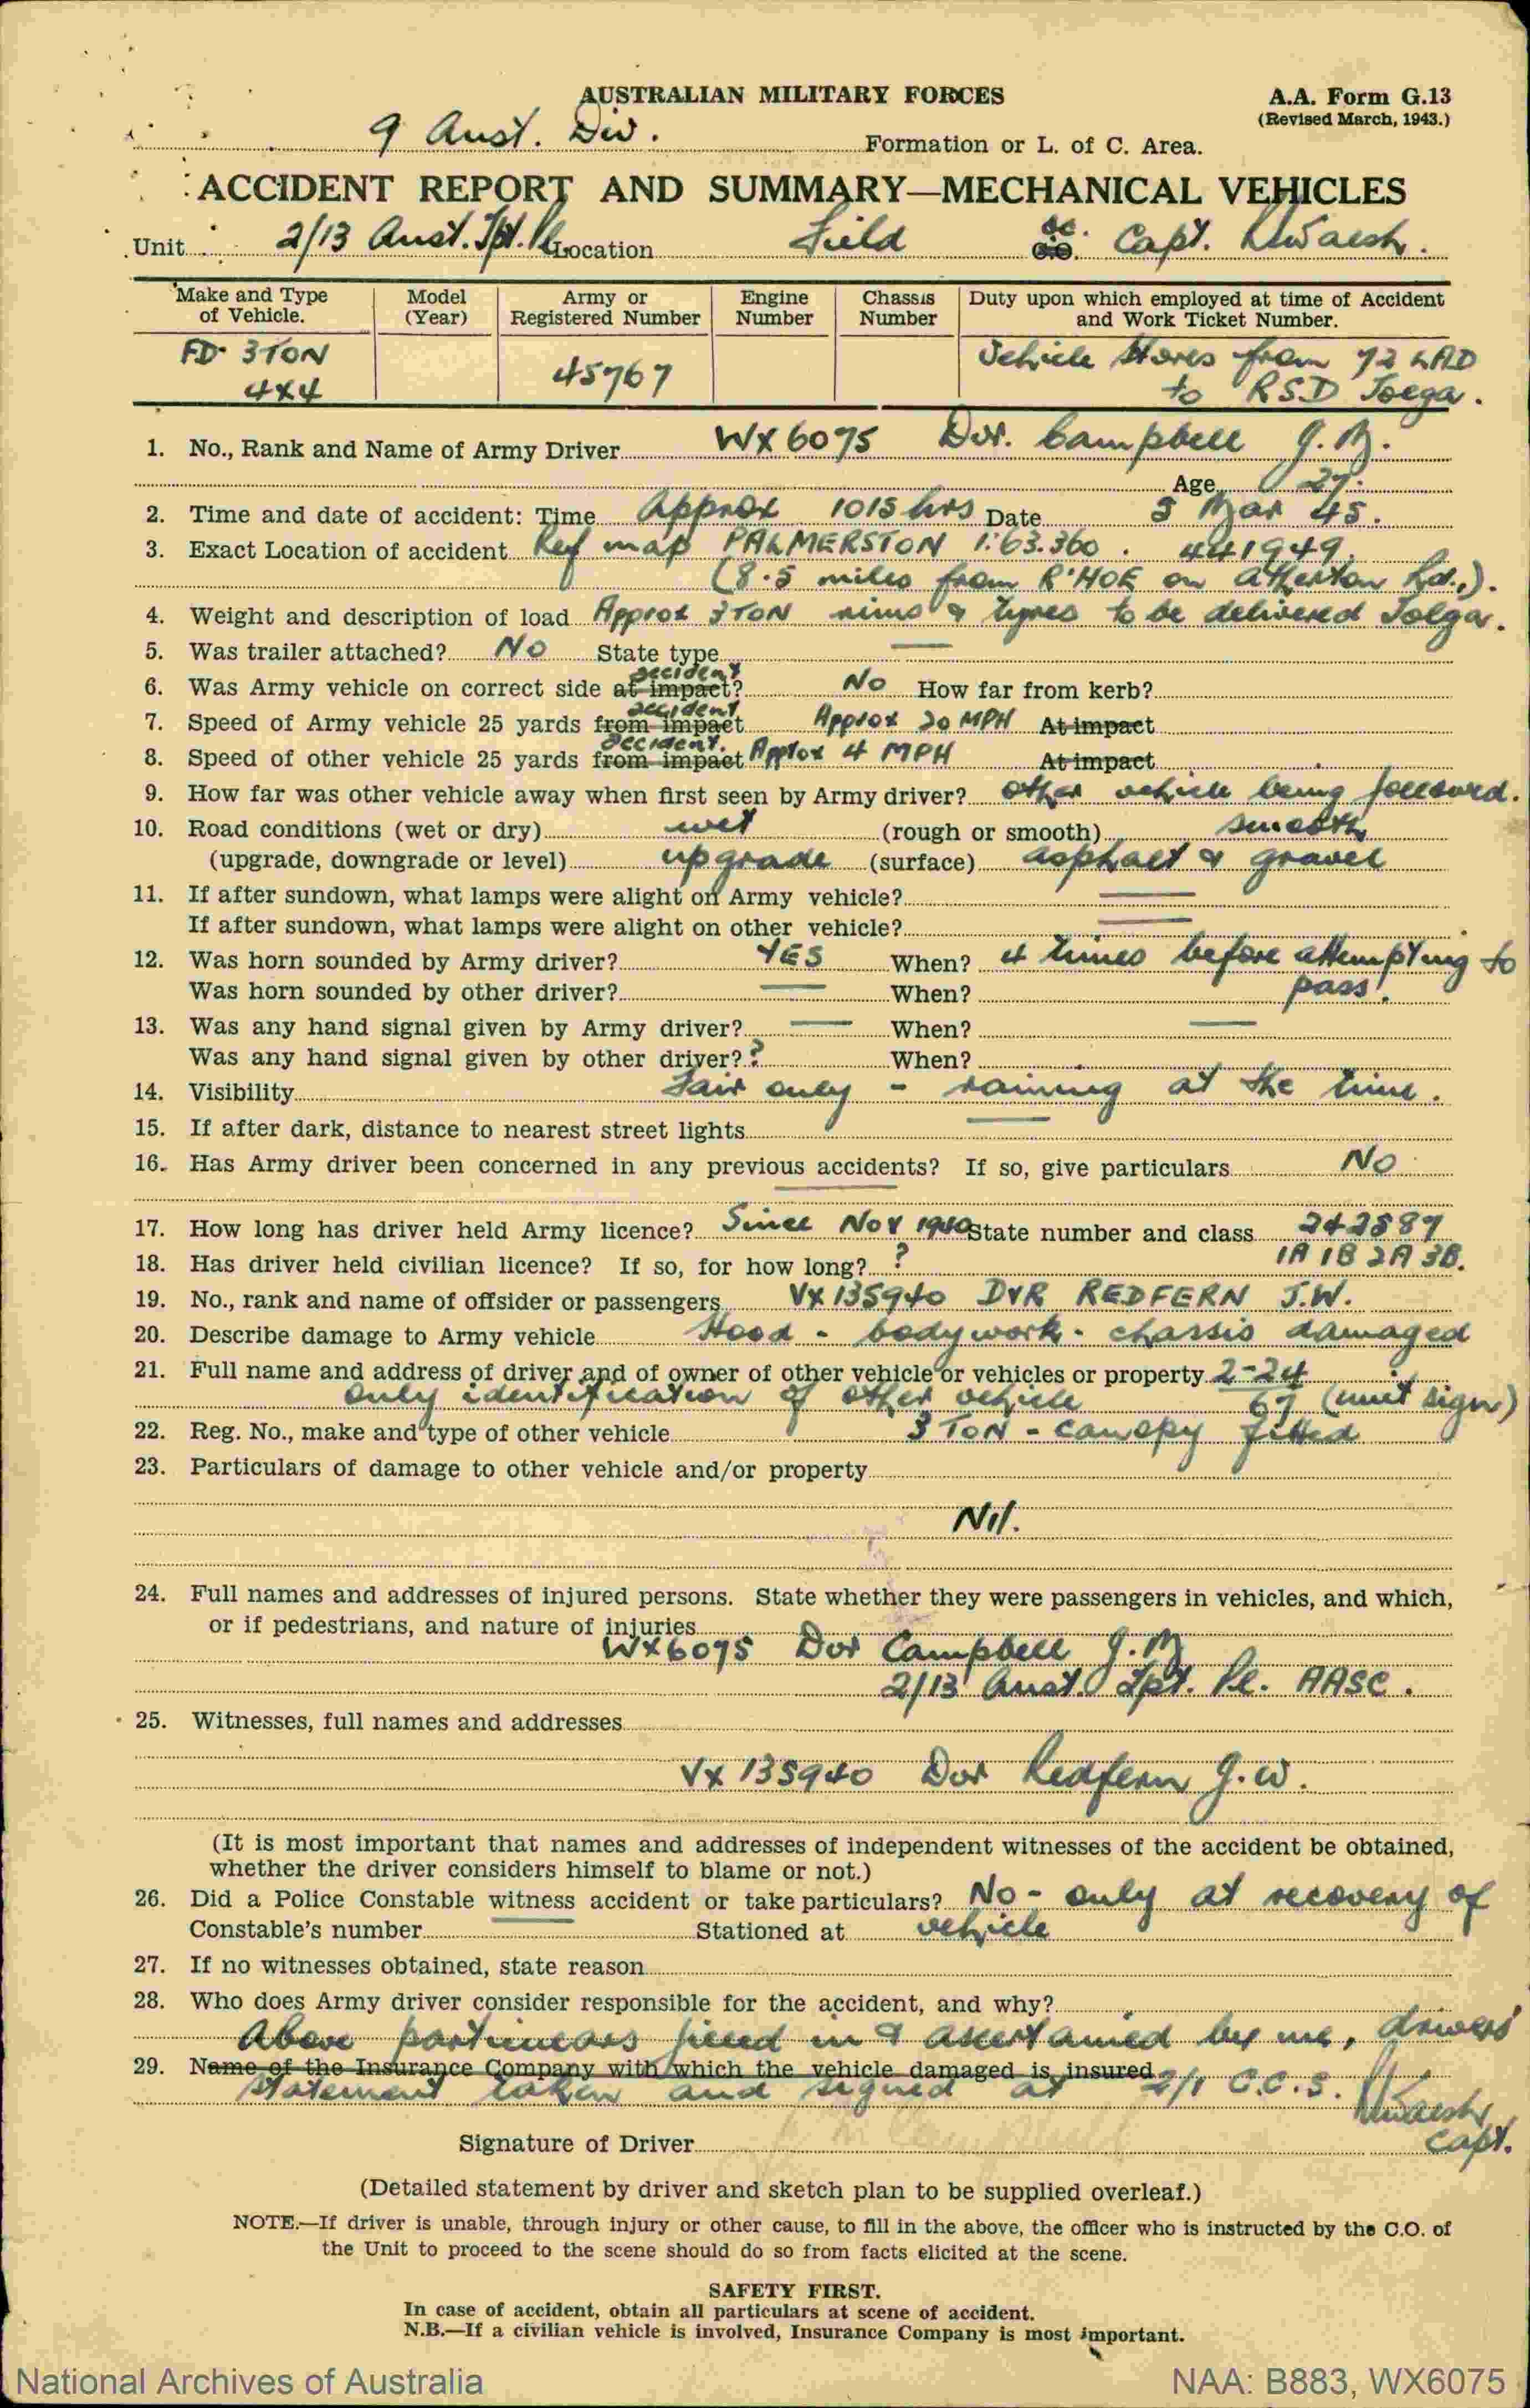 AUSTRALIAN MILITARY FORCES
A.A. Form G.13
(Revised March, 1943.)
9 Aust. Div. Formation or L. of C. Area.
ACCIDENT REPORT AND SUMMARY—MECHANICAL VEHICLES
Unit 2/13 Aust. Tpt. Pl. Location Field OC. Capt.
Make and Type of Vehicle. Model (Year) Army or Registered Number Engine Number Chassis Number Duty upon which employed at time of Accident and Work Ticket Number.
FD. 3 TON 45767 Vehicle Stores from 72 LAD
4x4 to RSD Tolga.
1. No., Rank and Name of Army Driver WX6075 Dvr. Campbell J. M.
Age 27.
2. Time and date of accident: Time Approx 1015 hrs Date 3 Mar 45.
3. Exact Location of accident Ref map PALMERSTON 1:63.360. 441949.
(8.5 miles from R'HOE on Atherton Rd.,).
4. Weight and description of load Approx 3 TON rims & tyres to be delivered Tolga.
5. Was trailer attached? No State type —
accident
6. Was Army vehicle on correct side at impact? No How far from kerb?
accident
7. Speed of Army vehicle 25 yards from impact Approx 20 MPH At impact
accident.
8. Speed of other vehicle 25 yards from impact Approx 4 MPH At impact
9. How far was other vehicle away when first seen by Army driver? Other vehicle being followed.
10. Road conditions (wet or dry) wet (rough or smooth) smooth
(upgrade, downgrade or level) upgrade (surface) asphalt & gravel
11. If after sundown, what lamps were alight on Army vehicle? —
If after sundown, what lamps were alight on other vehicle? —
12. Was horn sounded by Army driver? YES When? 4 times before attempting to
Was horn sounded by other driver? — When? pass.
13. Was any hand signal given by Army driver? — When? —
Was any hand signal given by other driver? ? When?
14. Visibility Fair only - raining at the time.
15. If after dark, distance to nearest street lights —
16. Has Army driver been concerned in any previous accidents? If so, give particulars No
17. How long has driver held Army licence? Since Nov 1940 State number and class 242887
18. Has driver held civilian licence? If so, for how long? ? 1A 1B 2A 3B.
19. No., rank and name of offsider or passengers VX135940 DVR REDFERN J.W.
20. Describe damage to Army vehicle Hood - bodywork - chassis damaged
21. Full name and address of driver and of owner of other vehicle or vehicles or property 2-24
only identification of other vehicle 67 (unit sign)
22. Reg. No., make and type of other vehicle 3 TON - canopy fitted
23. Particulars of damage to other vehicle and/or property
Nil.
24. Full names and addresses of injured persons. State whether they were passengers in vehicles, and which,
or if pedestrians, and nature of injuries
WX6075 Dvr Campbell J. M
2/13 Aust. Tpt. Pl. AASC.
25. Witnesses, full names and addresses
VX135940 Dvr Redfern J.W.
(It is most important that names and addresses of independent witnesses of the accident be obtained,
whether the driver considers himself to blame or not.)
26. Did a Police Constable witness accident or take particulars? No - only at recovery of
Constable's number — Stationed at vehicle
27. If no witnesses obtained, state reason
28. Who does Army driver consider responsible for the accident, and why?
Above particulars filled in & ascertained by me, drivers
29. Name of the Insurance Company with which the vehicle damaged is insured
statement taken and signed at 2/1 C.C.S.
Capt.
Signature of Driver
(Detailed statement by driver and sketch plan to be supplied overleaf.)
NOTE.—If driver is unable, through injury or other cause, to fill in the above, the officer who is instructed by the C.O. of
the Unit to proceed to the scene should do so from facts elicited at the scene.
SAFETY FIRST.
In case of accident, obtain all particulars at scene of accident.
N.B.—If a civilian vehicle is involved, Insurance Company is most important.
National Archives of Australia NAA: B883, WX6075